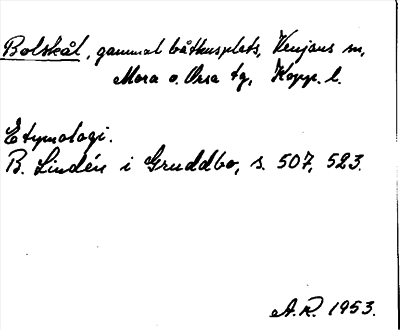 Bolskål, gammal båthusplats, Venjans sn,
Mora o. Orsa tg, Kopp. l.
Etymologi.
B. Lindén i Gruddbo, s. 507, 523.
A.R. 1953.